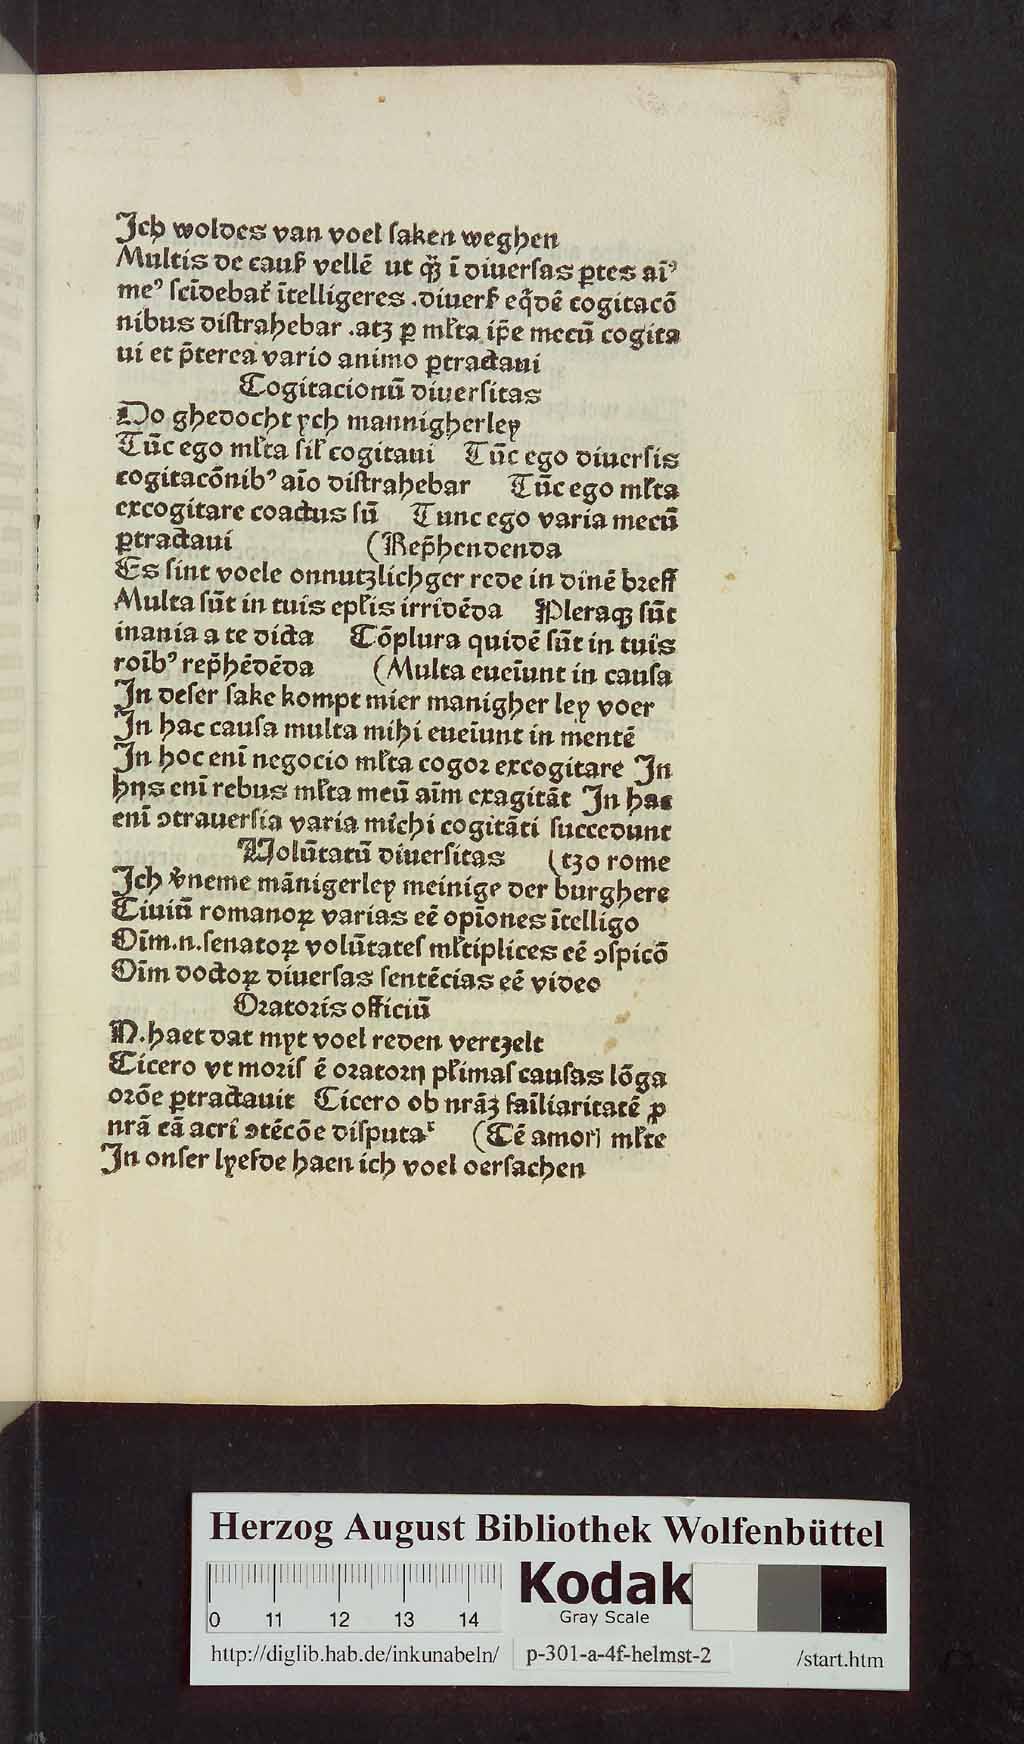 Ich woldes van voel saken weghen
Multis de causꝭ vellē ut qꝫ̄ ī diuersas ꝑtes aīꝰ
meꝰ scīdebat᷑ ītelligeres .diuersꝭ eqͥdē cogitacō
nibus distrahebar .atꝫ ꝑ ml̓ta ip̄e mecū cogita
ui et p̄terea vario animo ꝑtractaui
Cogitacionū diuersitas
Do ghedocht ych mannigherley
Tūc ego ml̓ta sil̓ cogitaui Tūc ego diuersis
cogitacōnibꝰ aīo distrahebar Tūc ego ml̓ta
excogitare coactus sū Tunc ego varia mecū
ꝑtractaui (Rep̄hendenda
Es sint voele onnutzlichger rede in dinē breff
Multa sūt in tuis epl̓is irridēda Pleraqꝫ sūt
inania a te dicta Cōplura quidē sūt in tuis
roīb̓ꝰ rep̄hēdēda (Multa eueīunt in causa
In deser sake kompt mier manigher ley voer
In hac causa multa mihi eueīunt in mentē
In hoc enī negocio ml̓ta cogoꝛ excogitare In
hijs enī rebus ml̓ta meū aīm exagitāt In hac
enī ↄtrauersia varia michi cogitāti succedunt
Volūtatū diuersitas (tzo rome
Ich v̓neme mānigerley meinige der burghere
Ciuiū romanoꝝ varias eē opīones ītelligo
Oīm.n.senatoꝝ volūtates ml̓tiplices eē ↄspicō
Oīm doctoꝝ diuersas sentēcias eē video
Oꝛatoꝛis officiū
N.haet dat myt voel reden vertzelt
Cicero vt moꝛis ē oꝛatoꝛū pl̓imas causas lōga
oꝛōe ꝑtractauit Cicero ob nrāꝫ faīliaritatē ꝓ
nrā cā acri ↄtēcōe disputaᷣ (Cē amoꝛꝭ ml̓te
In onser lyefde haen ich voel oersachen
Herzog August Bibliothek Wolfenbüttel
Kodak
Gray Scale
0 11 12 13 14
http://diglib.hab.de/inkunabeln/ p-301-a-4f-helmst-2 /start.htm